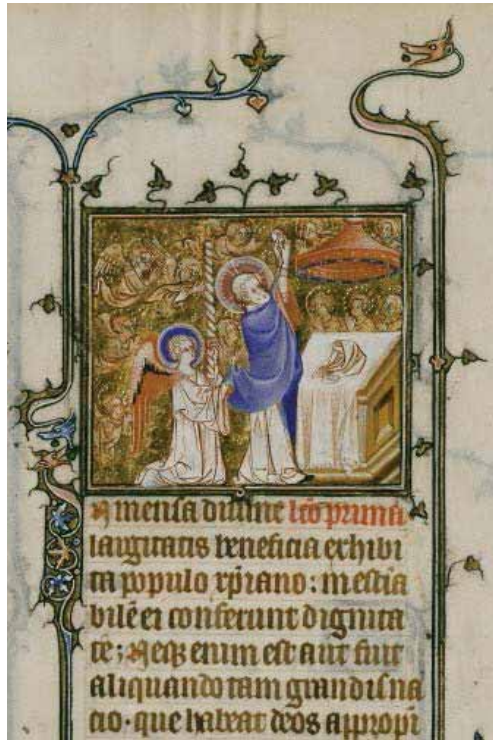 Immensa diuine lc̄o prima
largitatis beneficia exhibi
ta populo xp̄iano: inestia
bilē ei conferunt dignita
tē; Neqꝫ enim est aut fuit
aliquando tam grandis na
cio· que habeat deos appropi